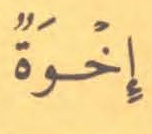 إِخْوَةٌ